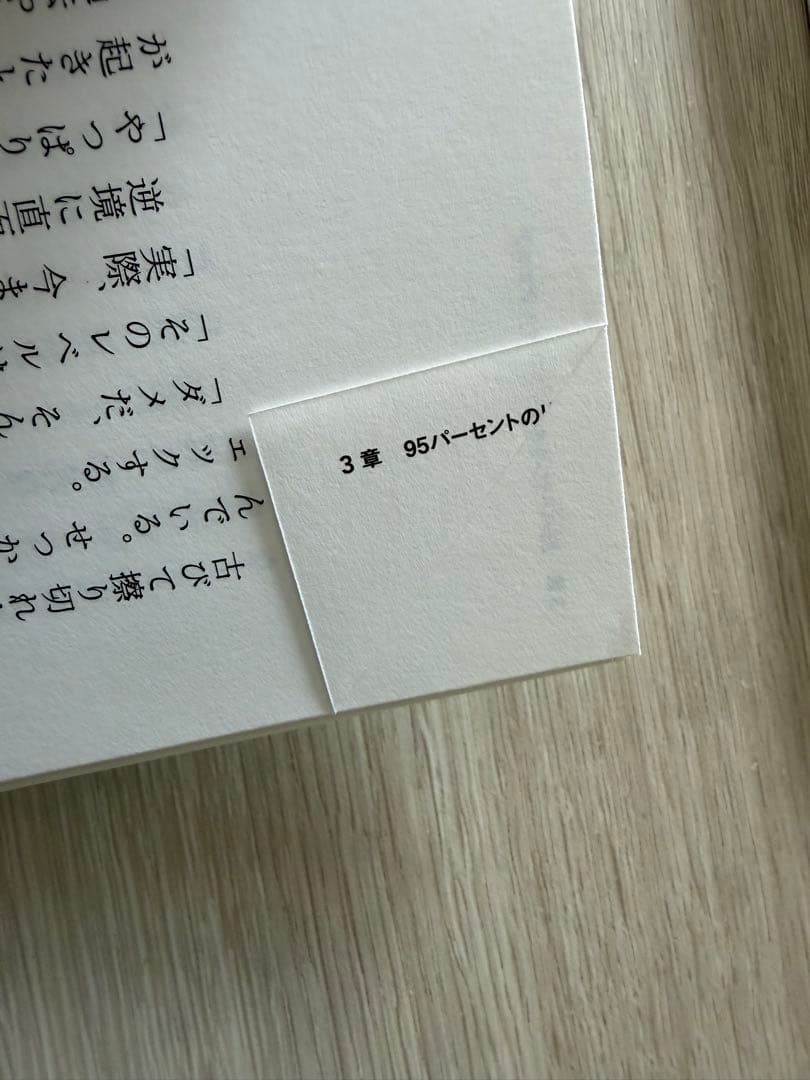 3章　95パーセントの
古びて擦り切れ
んでいる。せっか
ェックする。
「ダメだ、そん
「そのレベル
「実際、今ま
逆境に直
「やっぱり
が起きた